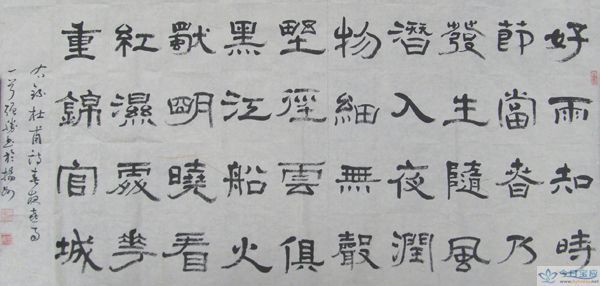 好雨知時
節當春乃
發生隨風
潛入夜潤
物細無聲
野徑雲俱
黑江船火
獨明曉看
紅濕處花
重錦官城
右錄杜甫詩春夜喜雨
於揚州
今日宝应